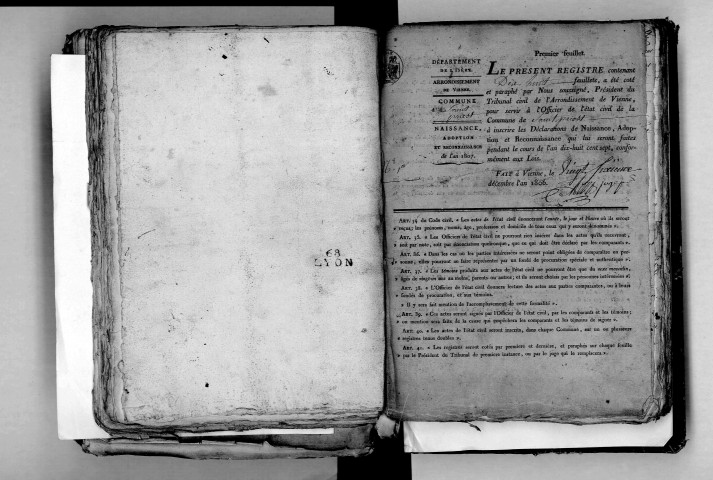 68
LYON
Premier feuillet.
DÉPARTEMENT
DE L'ISÈRE.
ARRONDISSEMENT
DE VIENNE.
COMMUNE
de Saint
priest
NAISSANCE,
ADOPTION
ET RECONNAISSANCE
de l'an 1807.
LE PRESENT REGISTRE contenant
Dix huit feuillets, a été coté
et paraphé par Nous soussigné, Président du
Tribunal civil de l'Arrondissement de Vienne,
pour servir à l'Officier de l'état civil de la
Commune de Saint priest
à inscrire les Déclarations de Naissance, Adop-
tion et Reconnaissance qui lui seront faites
pendant le cours de l'an dix-huit cent sept, confor-
mément aux Lois.
FAIT à Vienne, le Vingt
décembre l'an 1806.
ART. 34 du Code civil. « Les actes de l'état civil énonceront l'année, le jour et l'heure où ils seront
» reçus; les prénoms, noms, âge, profession et domicile de tous ceux qui y seront dénommés ».
ART. 35. « Les Officiers de l'état civil ne pourront rien insérer dans les actes qu'ils recevront,
» soit par note, soit par énonciation quelconque, que ce qui doit être déclaré par les comparants ».
ART. 36. « Dans les cas où les parties intéressées ne seront point obligées de comparaître en per-
» sonne, elles pourront se faire représenter par un fondé de procuration spéciale et authentique ».
ART. 37. « Les témoins produits aux actes de l'état civil ne pourront être que du sexe masculin,
» âgés de vingt-un ans au moins, parents ou autres; et ils seront choisis par les personnes intéressées ».
ART. 38. « L'Officier de l'état civil donnera lecture des actes aux parties comparantes, ou à leurs
» fondés de procuration, et aux témoins.
» Il y sera fait mention de l'accomplissement de cette formalité ».
ART. 39. « Ces actes seront signés par l'Officier de l'état civil, par les comparants et les témoins;
» ou mention sera faite de la cause qui empêchera les comparants et les témoins de signer ».
ART. 40. « Les actes de l'état civil seront inscrits, dans chaque Commune, sur un ou plusieurs
» registres tenus doubles ».
ART. 41. « Les registres seront cotés par première et dernière, et paraphés sur chaque feuille
» par le Président du Tribunal de première instance, ou par le juge qui le remplacera ».